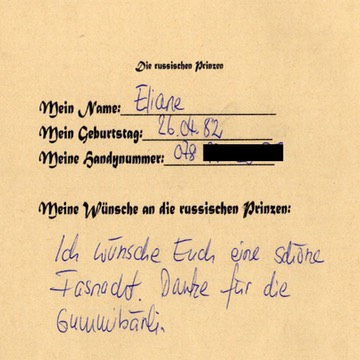 Die russischen Prinzen
Mein Name: Eliane
Mein Geburtstag: 26.04.82
Meine Handynummer: 078
Meine Wünsche an die russischen Prinzen:
Ich wünsche Euch eine schöne
Fasnacht. Danke für die
Gummibärli.